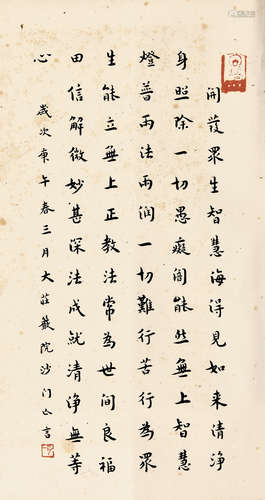 開發眾生智慧海得見如來清淨
身照除一切愚癡闇能然無上智慧
燈普雨法雨潤一切難行苦行為眾
生能立無上正教法常為世間良福
田信解微妙甚深法成就清淨無等
心
歲次庚午春三月大莊嚴院沙门言